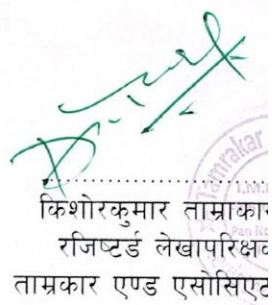 किशोरकुमार ताम्राकार
रजिष्टर्ड लेखापरिक्षक
ताम्रकार एण्ड एसोसिएट